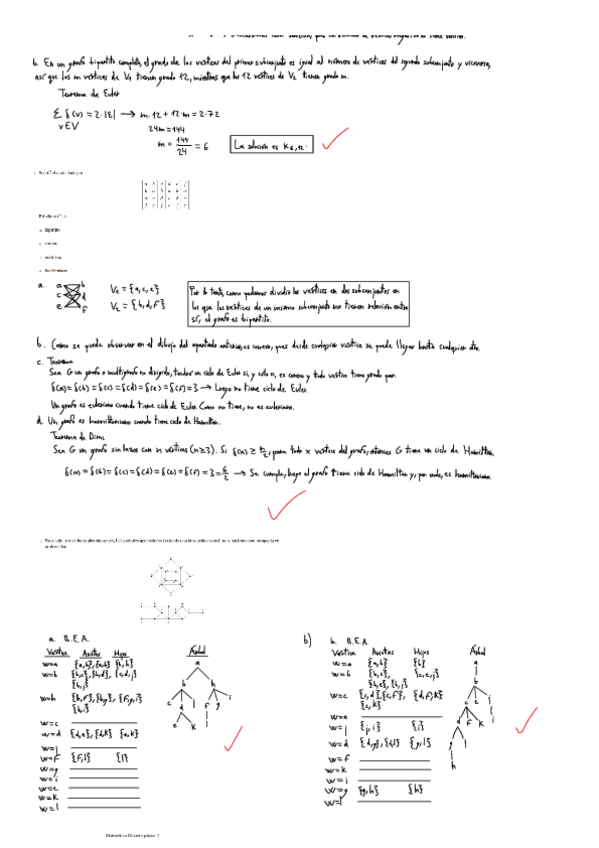 b. En un grafo bipartito completo, el grado de los vértices del primer subconjunto es igual al número de vértices del segundo subconjunto y viceversa,
así que los m vértices de V1 tienen grado 12, mientras que los 12 vértices de V2 tienen grado m.
Teorema de Euler
Σ δ(v) = 2·|E| → m·12 + 12·m = 2·72
v∈V
24m = 144
m = 144/24 = 6
La solución es K6,12.
a.
a b
c d
e f
V1 = {a, c, e}
V2 = {b, d, f}
Por lo tanto, como podemos dividir los vértices en dos subconjuntos en
los que los vértices de un mismo subconjunto no tienen relación entre
sí, el grafo es bipartito.
b. Como se puede observar en el dibujo del apartado anterior, es conexo, pues desde cualquier vértice se puede llegar hasta cualquier otro.
c. Teorema
Sea G un grafo o multigrafo no dirigido, tendrá un ciclo de Euler si, y solo si, es conexo y todo vértice tiene grado par.
δ(a) = δ(b) = δ(c) = δ(d) = δ(e) = δ(f) = 3 → Luego no tiene ciclo de Euler.
Un grafo es euleriano cuando tiene ciclo de Euler. Como no tiene, no es euleriano.
d. Un grafo es hamiltoniano cuando tiene ciclo de Hamilton.
Teorema de Dirac
Sea G un grafo sin lazos con n vértices (n≥3). Si δ(x) ≥ n/2, para todo x vértice del grafo, entonces G tiene un ciclo de Hamilton.
δ(a) = δ(b) = δ(c) = δ(d) = δ(e) = δ(f) = 3 = 6/2 → Se cumple, luego el grafo tiene ciclo de Hamilton y, por ende, es hamiltoniano.
a. B.E.A.
Vértice Aristas Hijos Árbol
w=a {a,b},{a,h} {b,h}
w=b {b,c},{b,d}, {c,d,j}
{b,j}
w=h {h,f},{h,g}, {f,g,i}
{h,i}
w=c
w=d {d,e},{d,k} {e,k}
w=j
w=f {f,l} {l}
w=g
w=i
w=e
w=k
w=l
b) b. B.E.A
Vértice Aristas Hijos Árbol
w=a {a,b} {b}
w=b {b,c}, {c,e,j}
{b,e},{b,j}
w=c {c,d},{c,f}, {d,f,k}
{c,k}
w=e
w=j {j,i} {i}
w=d {d,g},{d,l} {g,l}
w=f
w=k
w=i
w=g {g,h} {h}
w=l
Matemática Discreta página 2